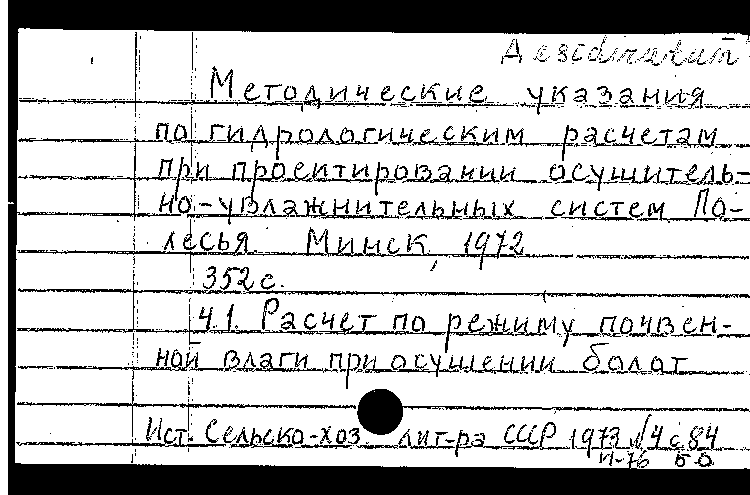 Desideratum
Методические указания
по гидрологическим расчетам
при проектировании осушитель-
но-увлажнительных систем По-
лесья. Минск, 1972
352 с.
Ч.1. Расчет по режиму почвен-
ной влаги при осушении болот
Ист. Сельско-хоз. лит-ра СССР 1973 №4 с 84
И-76 Б.О.